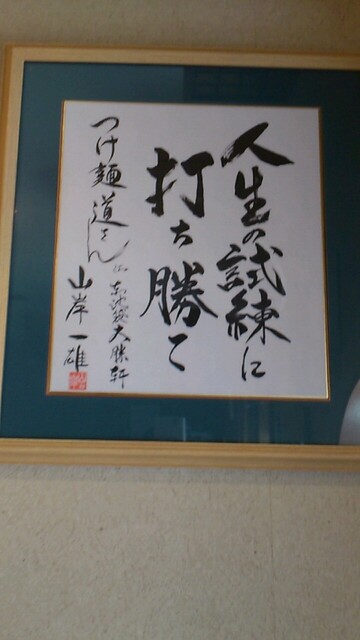 人生の試練に
打ち勝て
つけ麺道さん
東池袋大勝軒
山岸一雄